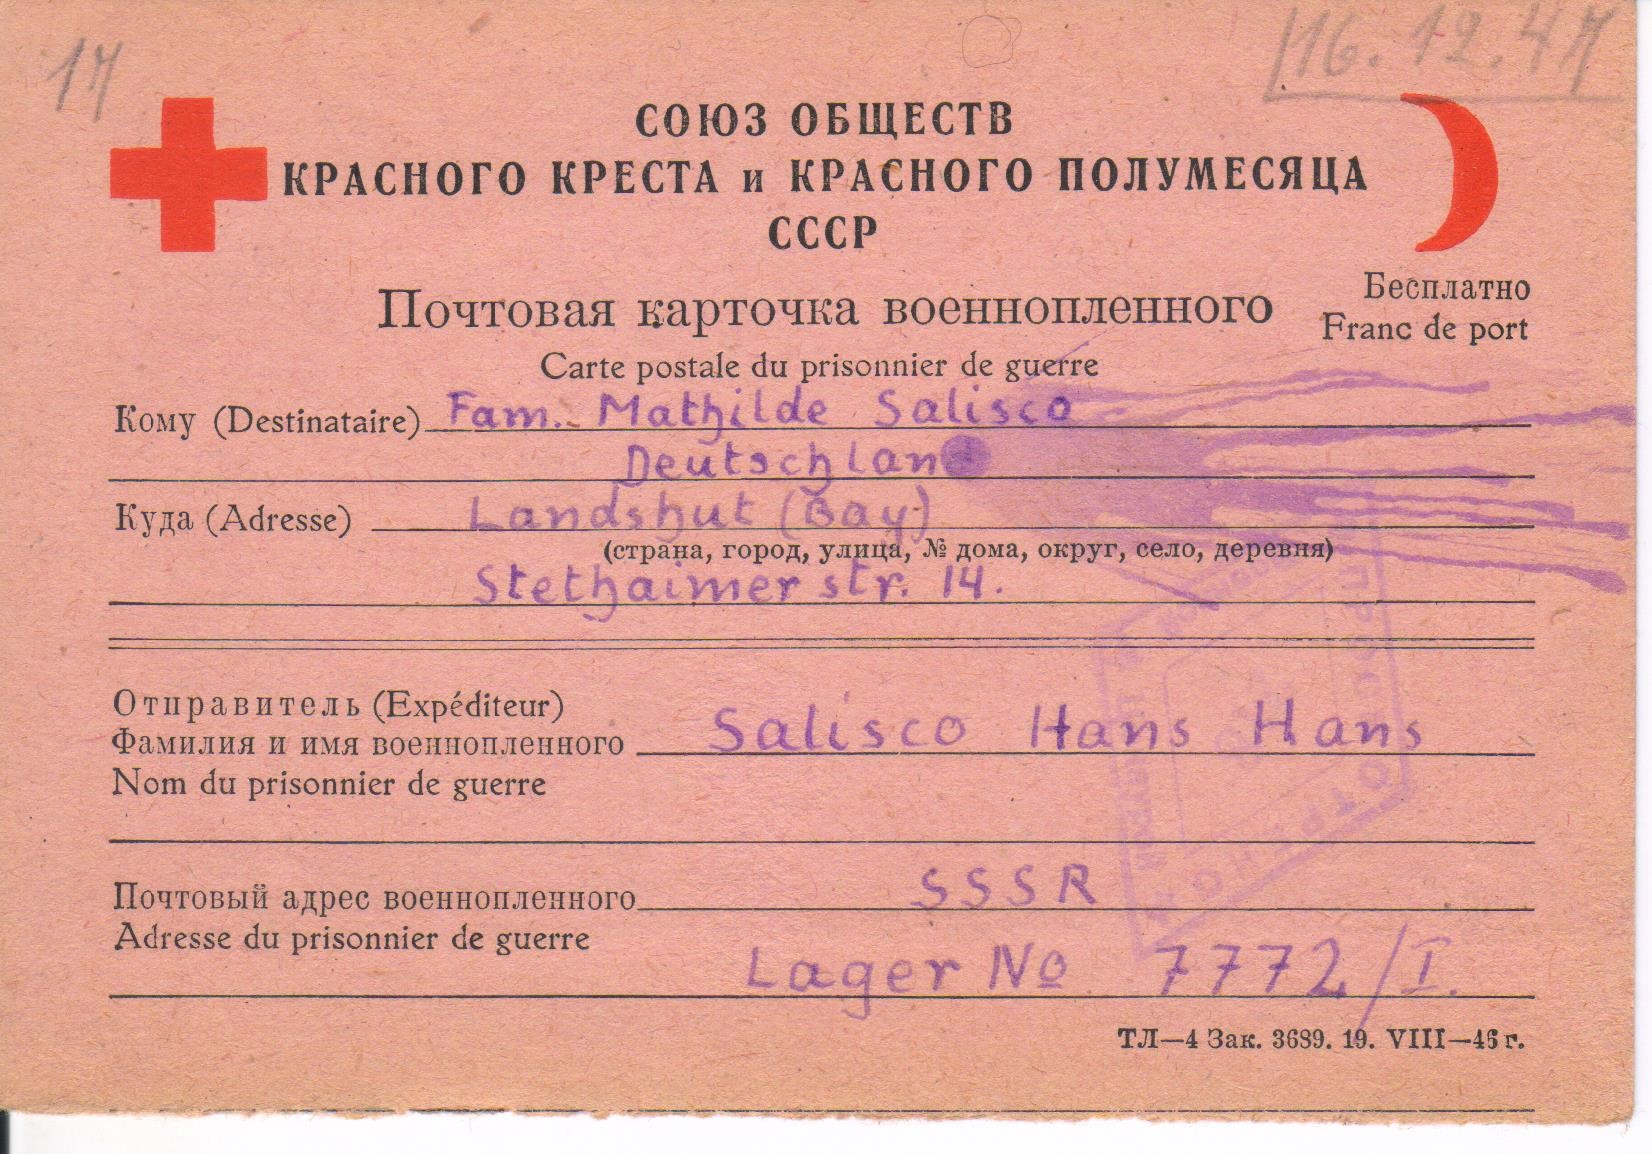 17
16.12.47
СОЮЗ ОБЩЕСТВ
КРАСНОГО КРЕСТА и КРАСНОГО ПОЛУМЕСЯЦА
СССР
Почтовая карточка военнопленного
Бесплатно
Franc de port
Carte postale du prisonnier de guerre
Кому (Destinataire) Fam. Mathilde Salisco
Deutschland
Куда (Adresse) Landshut (Bay)
(страна, город, улица, № дома, округ, село, деревня)
Stethaimerstr. 14.
Отправитель (Expéditeur)
Фамилия и имя военнопленного Salisco Hans Hans
Nom du prisonnier de guerre
Почтовый адрес военнопленного SSSR
Adresse du prisonnier de guerre
Lager No 7772/I.
ТЛ—4 Зак. 3689. 19. VIII—46 г.